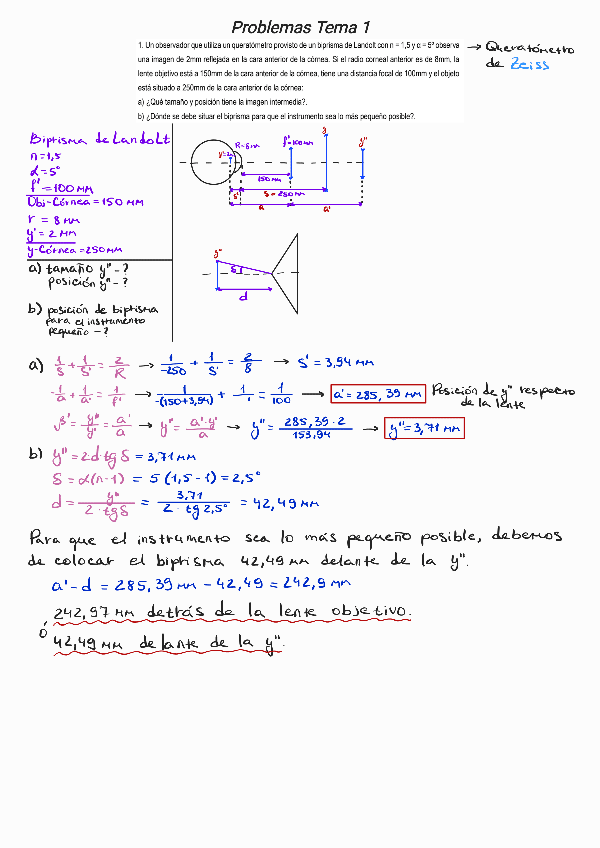 Problemas Tema 1
1. Un observador que utiliza un queratómetro provisto de un biprisma de Landolt con n = 1,5 y α = 5º observa
una imagen de 2mm reflejada en la cara anterior de la córnea. Si el radio corneal anterior es de 8mm, la
lente objetivo está a 150mm de la cara anterior de la córnea, tiene una distancia focal de 100mm y el objeto
está situado a 250mm de la cara anterior de la córnea:
a) ¿Qué tamaño y posición tiene la imagen intermedia?.
b) ¿Dónde se debe situar el biprisma para que el instrumento sea lo más pequeño posible?.
→ Queratómetro
de Zeiss
Biprisma de Landolt
n=1,5
α=5°
f'=100 mm
Obj-Córnea=150 mm
r = 8 mm
y'= 2 mm
y-Córnea=250mm
a) tamaño y''-?
posición y''-?
b) posición de biprisma
para el instrumento
pequeño -?
R=8mm
y'=2
f'=100mm
y
y''
150 mm
s'
s=250mm
a
a'
y''
δ
d
a) 1/s + 1/s' = 2/R → 1/-250 + 1/s' = 2/8 → s' = 3,94 mm
-1/a + 1/a' = 1/f' → 1/-(150+3,94) + 1/' = 1/100 → a'=285,39 mm Posición de y'' respecto
de la lente
β'= y''/y' = a'/a → y''= a'·y'/a → y''= 285,39·2/153,94 → y''=3,71 mm
b) y''=2·d·tg δ = 3,71 mm
δ = α(n-1) = 5 (1,5-1) = 2,5°
d = y''/2·tgδ = 3,71/2·tg 2,5° = 42,49 mm
Para que el instrumento sea lo más pequeño posible, debemos
de colocar el biprisma 42,49 mm delante de la y''.
a'-d = 285,39 mm - 42,49 = 242,9 mm
242,97 mm detrás de la lente objetivo.
ó
42,49 mm delante de la y''.